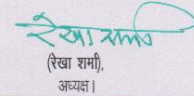 रेखा शर्मा
(रेखा शर्मा),
अध्यक्ष।